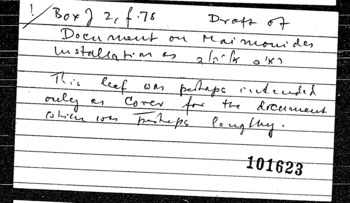 Box J 2, f. 76 Draft of
Document on Maimonides
installation as
This leaf was perhaps intended
only as cover for the document
which was perhaps lengthy.
101623